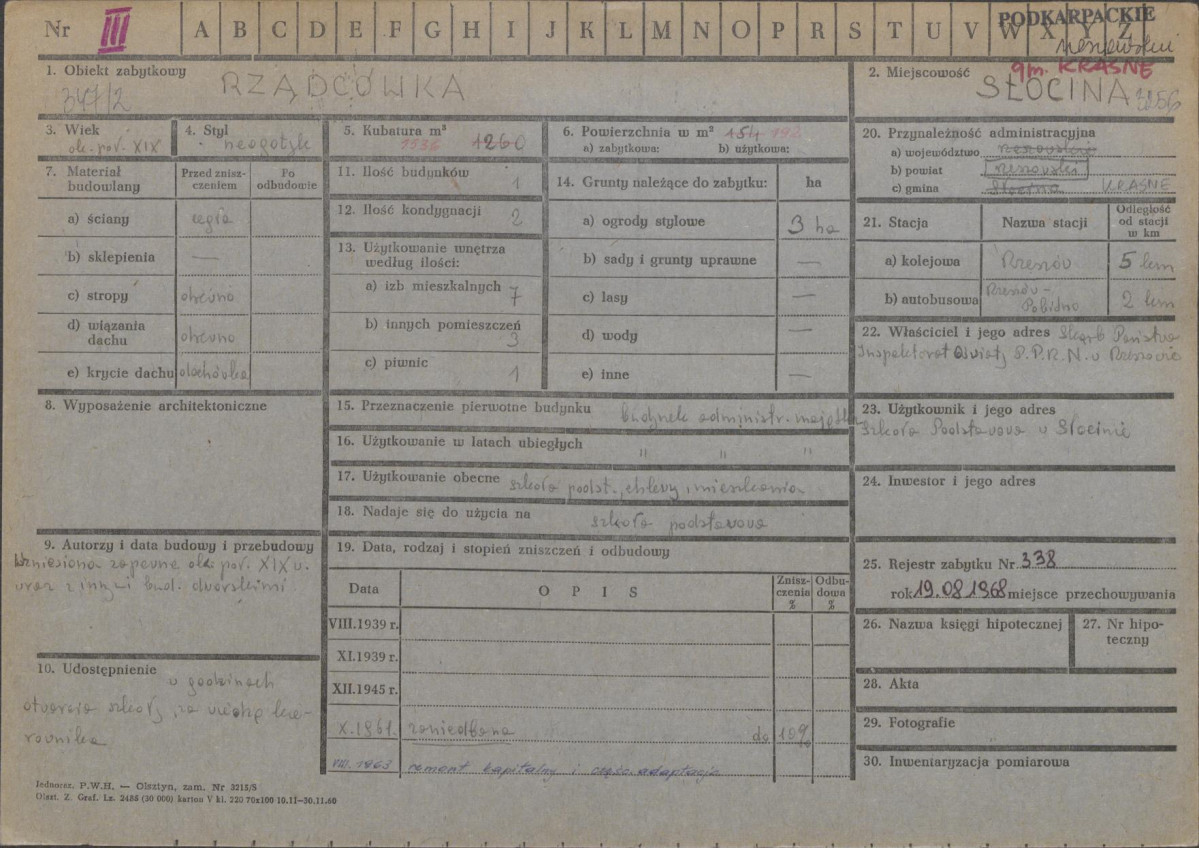 Nr III A B C D E F G H I J K L M N O P R S T U V W X Y Z
PODKARPACKIE
rzeszowski
gm. KRASNE
1. Obiekt zabytkowy
RZĄDCÓWKA
347/2
2. Miejscowość
SŁOCINA
3256
3. Wiek
ok. poł. XIX
4. Styl
neogotyk
5. Kubatura m³
1536 1260
6. Powierzchnia w m²
154 192
a) zabytkowa: b) użytkowa:
7. Materiał budowlany
Przed zniszczeniem
Po odbudowie
a) ściany
cegła
b) sklepienia
—
c) stropy
drewno
d) wiązania dachu
drewno
e) krycie dachu
dachówka
8. Wyposażenie architektoniczne
9. Autorzy i data budowy i przebudowy
Wzniesiona zapewne ok. poł. XIX w.
wraz z innymi bud. dworskimi
10. Udostępnienie
w godzinach
otwarcia szkoły, za wiedzą kie-
rownika
11. Ilość budynków
1
12. Ilość kondygnacji
2
13. Użytkowanie wnętrza
według ilości:
a) izb mieszkalnych
7
b) innych pomieszczeń
3
c) piwnic
1
14. Grunty należące do zabytku:
ha
a) ogrody stylowe
3 ha
b) sady i grunty uprawne
—
c) lasy
—
d) wody
—
e) inne
—
15. Przeznaczenie pierwotne budynku
budynek administr.
16. Użytkowanie w latach ubiegłych
" " "
17. Użytkowanie obecne
szkoła podst., chlewy, mieszkania
18. Nadaje się do użycia na
szkoła podstawowa
19. Data, rodzaj i stopień zniszczeń i odbudowy
Data
O P I S
Znisz-
czenia
%
Odbu-
dowa
%
VIII.1939 r.
XI.1939 r.
XII.1945 r.
X.1961. zaniedbana do 10%
VIII. 1963 remont kapitalny i częśc. adaptacja
20. Przynależność administracyjna
a) województwo rzeszowskie
b) powiat rzeszowski
c) gmina Słocina KRASNE
21. Stacja
Nazwa stacji
Odległość
od stacji
w km
a) kolejowa
Rzeszów
5 km
b) autobusowa
Rzeszów -
Pobitno
2 km
22. Właściciel i jego adres Skarb Państwa
Inspektorat Oświaty P.P.R.N. w Rzeszowie
23. Użytkownik i jego adres
Szkoła Podstawowa w Słocinie
24. Inwestor i jego adres
25. Rejestr zabytku Nr. 338
rok 19.08.1968 miejsce przechowywania
26. Nazwa księgi hipotecznej
27. Nr hipo-
teczny
28. Akta
29. Fotografie
30. Inwentaryzacja pomiarowa
Jednorz. P.W.H. — Olsztyn, zam. Nr 3215/S
Olszt. Z. Graf. Lz. 2485 (30 000) karton V kl. 220 70x100 10.II—30.11.60